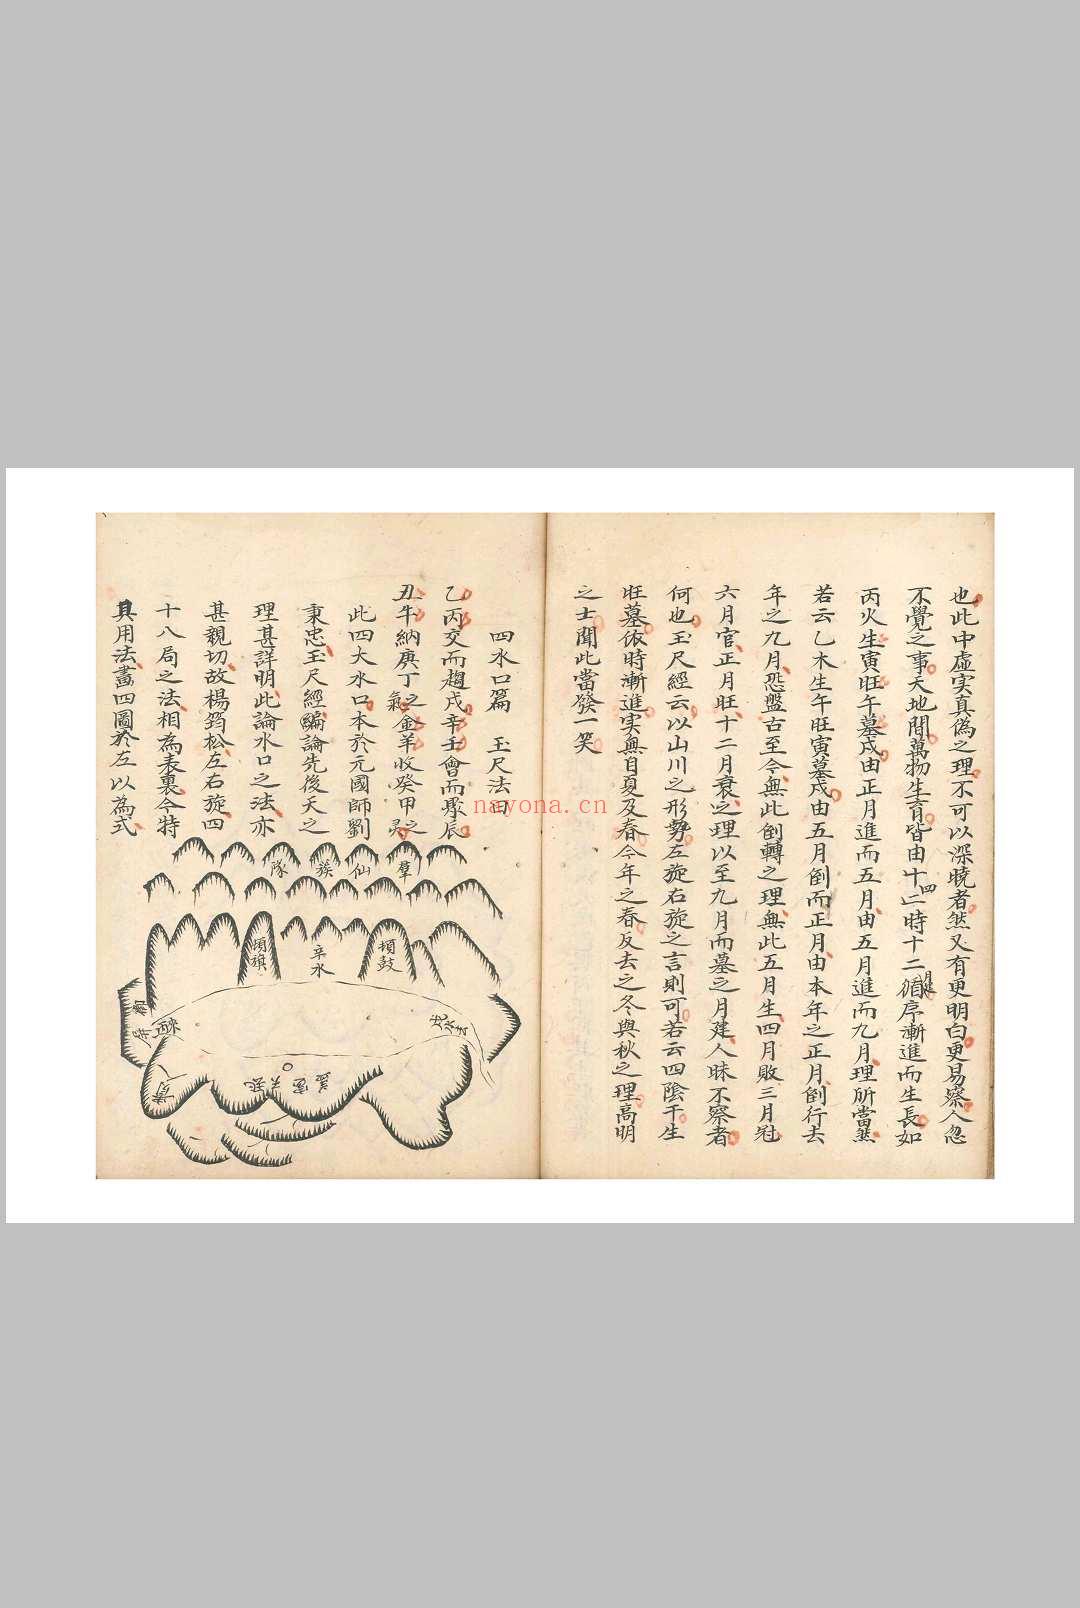 也此中虛实真偽之理不可以深曉者然又有更明白更易察人忽
不覺之事天地間萬物生育皆由十二時十二月建循序漸進而生長如
四
丙火生寅旺午墓戌由正月進而五月由五月進而九月理所當然
若云乙木生午旺寅墓戌由五月倒而正月由本年之正月倒行去
年之九月恐盤古至今無此倒轉之理無此五月生四月敗三月冠
六月官正月旺十二月衰之理以至九月而墓之月建人昧不察者
何也玉尺經云以山川之形勢左旋右旋之言則可若云四陰干生
旺墓依時漸進实無自夏及春今年之春反去之冬與秋之理高明
之士聞此當發一笑
四水口篇 玉尺法
乙丙交而趨戌辛壬會而聚辰
丑牛納庚丁之氣金羊收癸甲之灵
此四大水口本於元國師劉
秉忠玉尺經編論先後天之
理甚詳明此論水口之法亦
甚親切故楊筠松左右旋四
十八局之法相為表裏今特
具用法畫四圖於左以為式
nayona.cn
羣仙族隊
頓鼓
辛水
頓旗